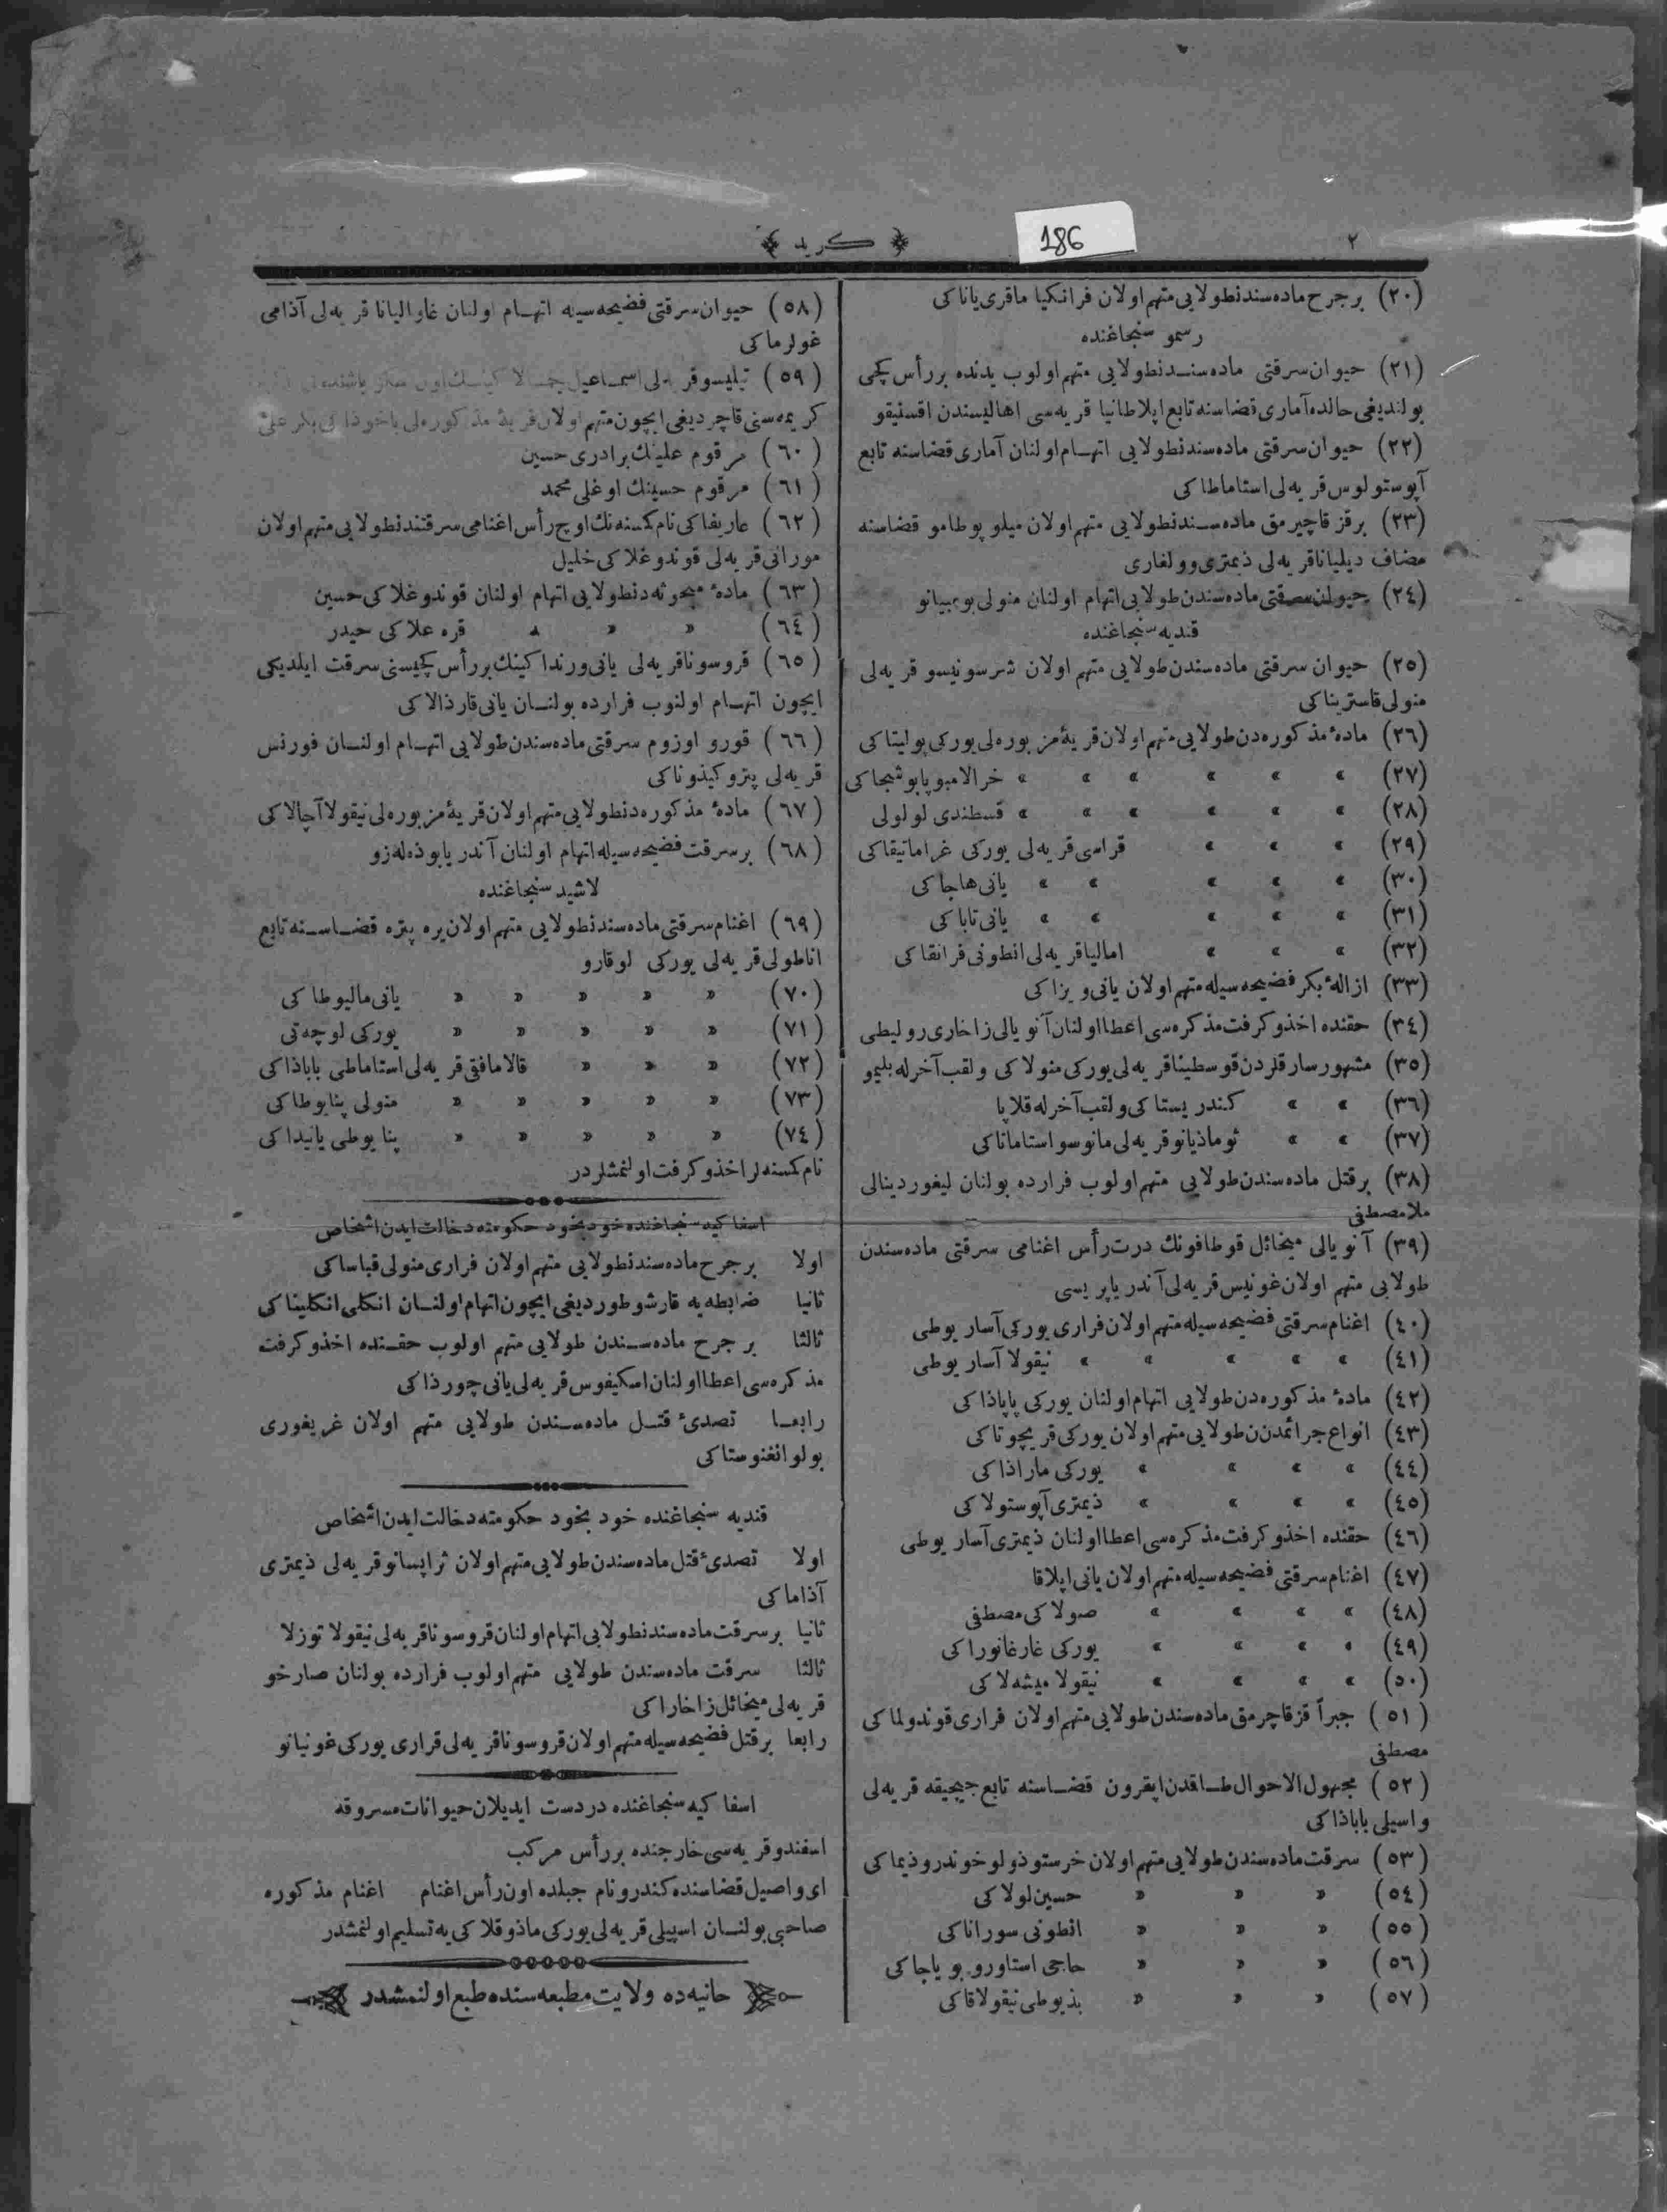 ٢
186
﴿ كريد ﴾
(٢٠) بر جرح ماده‌سندنطولايی متهم اولان فرانكيا ماقری‌ياناكی
رسمو سنجاغنده
(٢١) حيوان سرقتی ماده‌سندنطولايی متهم اولوب يدنده بر رأس كچی
بولنديغی حالده آماری قضاسنه تابع اپلاطانيا قريه‌سی اهاليسندن اقسنيقو
(٢٢) حيوان سرقتی ماده‌سندنطولايی اتهام اولنان آماری قضاسنه تابع
آپوستولوس قريه‌لی استاماطاكی
(٢٣) برقز قاچيرمق ماده‌سندنطولايی متهم اولان ميلوپوطامو قضاسنه
مضاف ديليانا قريه‌لی ذيمتری وولغاری
(٢٤) حيوان سرقتی ماده‌سندن طولايی اتهام اولنان منولی بومبيانو
قنديه سنجاغنده
(٢٥) حيوان سرقتی ماده‌سندن طولايی متهم اولان شرسونيسو قريه‌لی
منولی قاسترينا كی
(٢٦) مادۀ مذكوره‌دن طولايی متهم اولان قريۀ مزبوره‌لی يوركی پوليتاكی
(٢٧) « « « « « « خرالامبو پاپوشجاكی
(٢٨) « « « « « « قسطندی لولولی
(٢٩) « « « قراسی قريه‌لی يوركی غراماتيقاكی
(٣٠) « « « « « يانی هاجاكی
(٣١) « « « « « يانی تاباكی
(٣٢) « « « اماليا قريه‌لی انطونی فرانقاكی
(٣٣) ازالۀ بكر فضيحه‌سيله متهم اولان يانی ويزاكی
(٣٤) حقنده اخذ و كرفت مذكره‌سی اعطا اولنان آنويالی زاخاری روليطی
(٣٥) مشهور سارقلردن قوسطينا قريه‌لی يوركی منولاكی ولقب آخرله بليمو
(٣٦) « « كندر يستاكی ولقب آخرله قلاپا
(٣٧) « « ثوماذيانو قريه‌لی مانوسو استاماناكی
(٣٨) بر قتل ماده‌سندن طولايی متهم اولوب فرارده بولنان ليغوردينالی
ملا مصطفی
(٣٩) آنويالی ميخائل قوطافونك درت رأس اغنامی سرقتی ماده‌سندن
طولايی متهم اولان غونيس قريه‌لی آندريا پريسی
(٤٠) اغنام سرقتی فضيحه‌سيله متهم اولان فراری يوركی آسار يوطی
(٤١) « « « « « نيقولا آسار يوطی
(٤٢) مادۀ مذكوره‌دن طولايی اتهام اولنان يوركی پاپاذاكی
(٤٣) انواع جرائمدن طولايی متهم اولان يوركی قريچوتاكی
(٤٤) « « « « يوركی ماراذاكی
(٤٥) « « « « ذيمتری آپوستولاكی
(٤٦) حقنده اخذ و كرفت مذكره‌سی اعطا اولنان ذيمتری آسار يوطی
(٤٧) اغنام سرقتی فضيحه‌سيله متهم اولان يانی اپلاقا
(٤٨) « « « « صولاكی مصطفی
(٤٩) « « « « يوركی غارغانوراكی
(٥٠) « « « « نيقولا ميشه‌لاكی
(٥١) جبراً قز قاچرمق ماده‌سندن طولايی متهم اولان فراری قوندولماكی
مصطفی
(٥٢) مجهول الاحوال طاقدن اپقرون قضاسنه تابع جيجيقه قريه‌لی
واسيلی باباذاكی
(٥٣) سرقت ماده‌سندن طولايی متهم اولان خرستوذولو خوندروذيماكی
(٥٤) « « « حسين لولاكی
(٥٥) « « « انطونی سوراناكی
(٥٦) « « « حاجی استاورو بوياجاكی
(٥٧) « « « بذيوطی نيقولاقاكی
(٥٨) حيوان سرقتی فضيحه‌سيله اتهام اولنان غاواليانا قريه‌لی آذامی
غولرماكی
(٥٩) تيليسو قريه‌لی اسماعيل اون سكز ياشنده
كريمه‌سنی قاچرديغی ايچون متهم اولان قريۀ مذكوره‌لی علی
(٦٠) مرقوم علينك برادری حسين
(٦١) مرقوم حسينك اوغلی محمد
(٦٢) عاريفاكی نام كمسنه‌نك اوچ رأس اغنامی سرقتندنطولايی متهم اولان
مورانی قريه‌لی قوندوغلاكی خليل
(٦٣) مادۀ مبحوثه‌دنطولايی اتهام اولنان قوندوغلاكی حسين
(٦٤) « « « قره علاكی حيدر
(٦٥) قروسونا قريه‌لی يانی ورنداكينك بر رأس كچيسنی سرقت ايلديكی
ايچون اتهام اولنوب فرارده بولنان يانی قارذالاكی
(٦٦) قورو اوزوم سرقتی ماده‌سندن طولايی اتهام اولنان فورنس
قريه‌لی پترو كيذوناكی
(٦٧) مادۀ مذكوره‌دنطولايی متهم اولان قريۀ مزبوره‌لی نيقولا آچالاكی
(٦٨) بر سرقت فضيحه‌سيله اتهام اولنان آندريا بوذه‌له‌زو
لاشيد سنجاغنده
(٦٩) اغنام سرقتی ماده‌سندنطولايی متهم اولان يره‌پتره قضاسنه تابع
اناطولی قريه‌لی يوركی لوقارو
(٧٠) « « « « « يانی ماليوطاكی
(٧١) « « « « « يوركی لوچه‌تی
(٧٢) « « « قالامافتی قريه‌لی استاماطی باباذاكی
(٧٣) « « « « « منولی پنايوطاكی
(٧٤) « « « « « پنايوطی يانيداكی
نام كمسنه‌لر اخذ و كرفت اولنمشلردر
اسفاكيه سنجاغنده خود بخود حكومته دخالت ايدن اشخاص
اولا بر جرح ماده‌سندنطولايی متهم اولان فراری منولی قباساكی
ثانيا ضابطه‌يه قارشو طورديغی ايچون اتهام اولنان انكلی انكليناكی
ثالثا بر جرح ماده‌سندن طولايی متهم اولوب حقنده اخذ و كرفت
مذكره‌سی اعطا اولنان اسكيفوس قريه‌لی يانی چورذاكی
رابعا تصدئ قتل ماده‌سندن طولايی متهم اولان غريغوری
بولوانغنوستاكی
قنديه سنجاغنده خود بخود حكومته دخالت ايدن اشخاص
اولا تصدئ قتل ماده‌سندن طولايی متهم اولان ثراپسانو قريه‌لی ذيمتری
آذاماكی
ثانيا بر سرقت ماده‌سندنطولايی اتهام اولنان قروسونا قريه‌لی نيقولا توزلا
ثالثا سرقت ماده‌سندن طولايی متهم اولوب فرارده بولنان صارخو
قريه‌لی ميخائل زاخاراكی
رابعا بر قتل فضيحه‌سيله متهم اولان قروسونا قريه‌لی قراری يوركی غونيانو
اسفاكيه سنجاغنده دردست ايديلان حيوانات مسروقه
اسفندو قريه‌سی خارجنده بر رأس مركب
ای‌واصيل قضاسنده كندرو نام جبلده اون رأس اغنام اغنام مذكوره
صاحبی بولنان اسپيلی قريه‌لی يوركی ماذوقلاكی‌يه تسليم اولنمشدر
حانيه‌ده ولايت مطبعه‌سنده طبع اولنمشدر